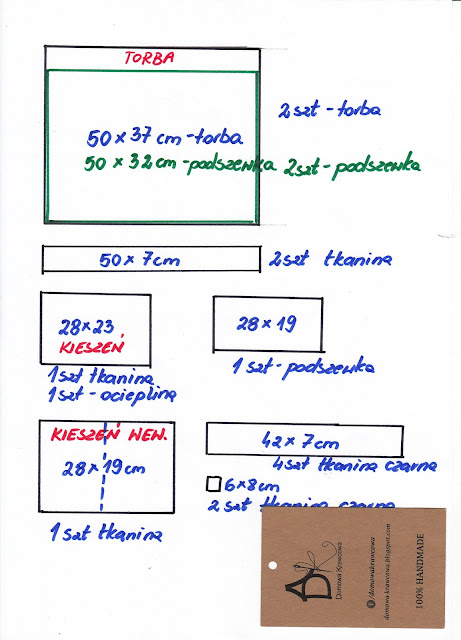 TORBA
2szt - torba
50 x 37 cm - torba
50 x 32 cm - podszewka 2szt - podszewka
50 x 7cm
2szt tkanina
28 x 23
KIESZEŃ
28 x 19
1szt tkanina
1szt - ocieplina
1szt - podszewka
KIESZEŃ WEW.
28 x 19 cm
42 x 7cm
4szt tkanina czarna
6 x 8cm
2szt tkanina czarna
1szt tkanina
Domowa Krawcowa
/domowakrawcowa
domowa-krawcowa.blogspot.com
100% HANDMADE